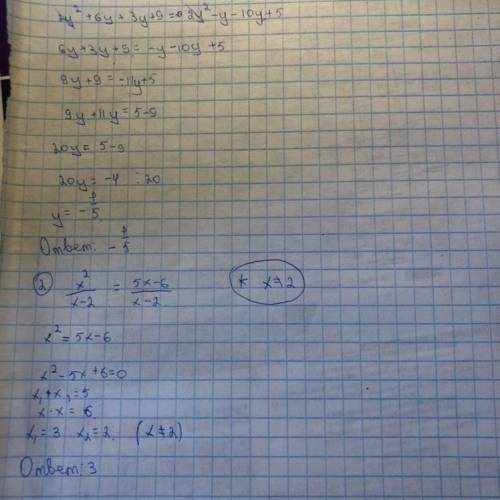 2y² + 6y + 3y + 9 = 2y² - y - 10y + 5
6y + 3y + 9 = -y - 10y + 5
9y + 9 = -11y + 5
9y + 11y = 5 - 9
20y = 5 - 9
20y = -4 : 20
y = -1/5
Ответ: -1/5
② x²/(x-2) = (5x-6)/(x-2) * x ≠ 2
x² = 5x - 6
x² - 5x + 6 = 0
x₁ + x₂ = 5
x · x = 6
x₁ = 3 x₂ = 2 (x ≠ 2)
Ответ: 3